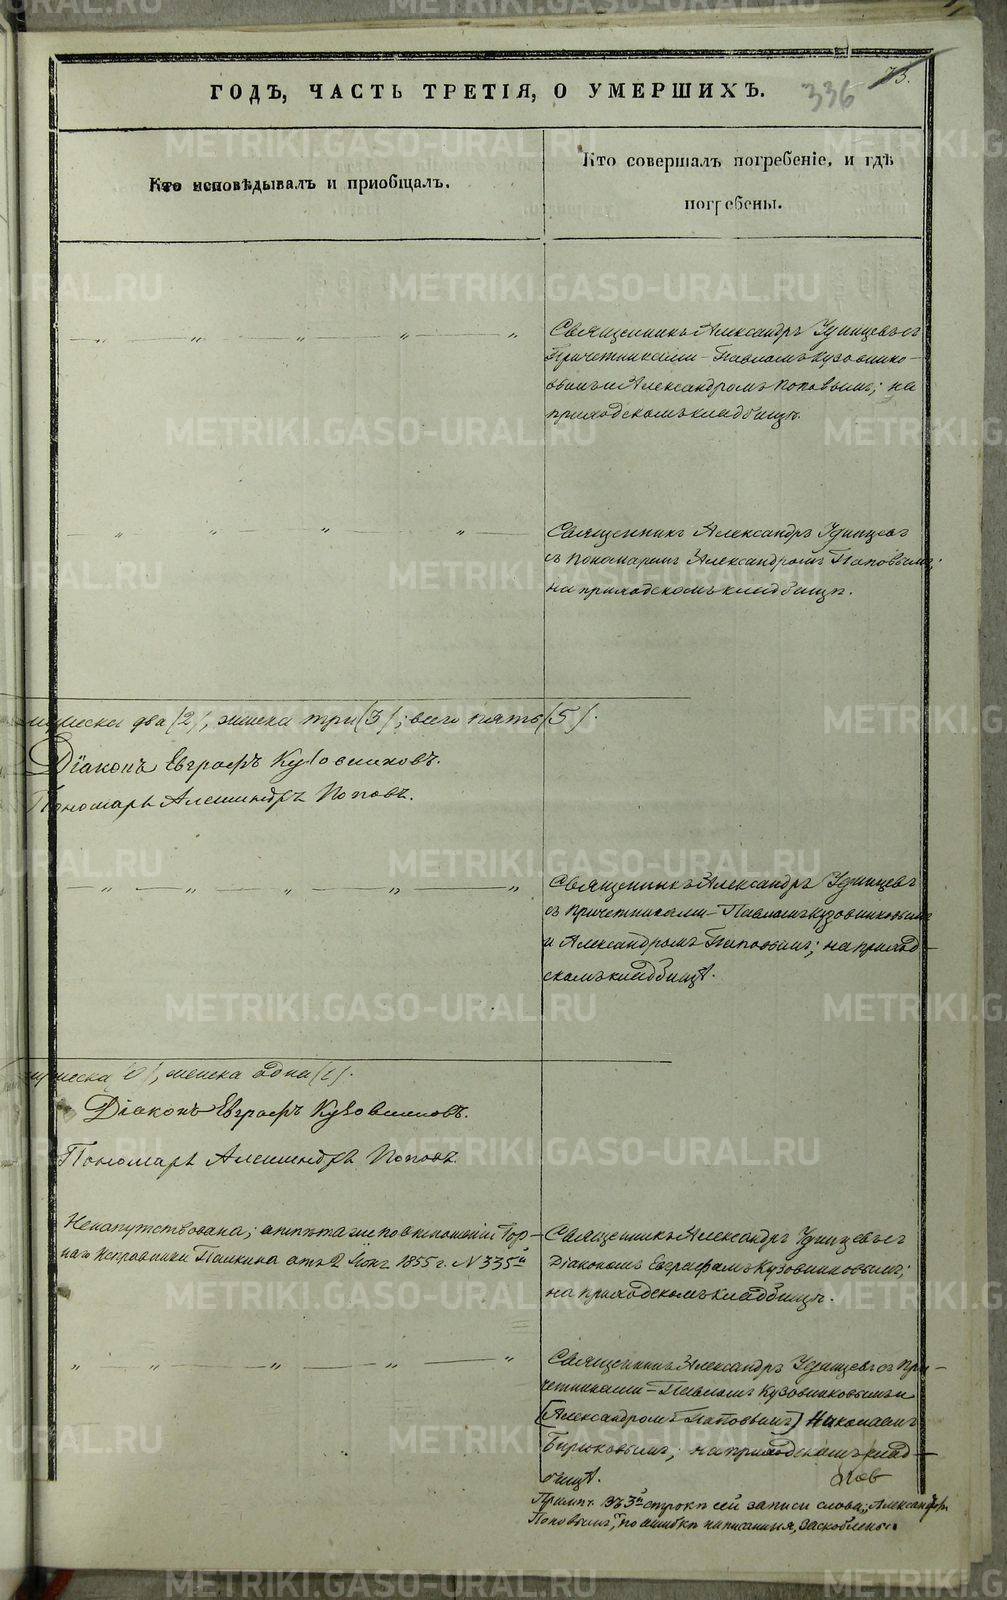 73.
336
ГОДЪ, ЧАСТЬ ТРЕТІЯ, О УМЕРШИХЪ.
Кто исповѣдывалъ и приобщалъ.
Кто совершалъ погребеніе, и гдѣ
погребены.
Священникъ Александръ Удинцевъ съ
Причетниками – Павломъ Кузовнико-
вымъ и Александромъ Поповымъ; на
приходскомъ кладбищѣ.
Священникъ Александръ Удинцевъ
съ Пономаремъ Александромъ Поповымъ;
на приходскомъ кладбищѣ.
мужеска два (2), женска три (3); всего пять (5).
Діаконъ Евграфъ Кузовниковъ.
Пономарь Александръ Поповъ.
Священникъ Александръ Удинцевъ
съ Причетниками – Павломъ Кузовниковымъ
и Александромъ Поповымъ; на приход-
скомъ кладбищѣ.
мужеска (0), женска одна (1).
Діаконъ Евграфъ Кузовниковъ.
Пономарь Александръ Поповъ.
Ненапутствована; отпѣта по отношенію Гор-
наго Исправника Пашкина отъ 2 1855 г. N 335й
Священникъ Александръ Удинцевъ съ
Діакономъ Евграфомъ Кузовниковымъ;
на приходскомъ кладбищѣ.
Священникъ Александръ Удинцевъ съ При-
четниками – Павломъ Кузовниковымъ и
(Александромъ Поповымъ) Николаемъ
Бирюковымъ; на приходскомъ клад-
бищѣ.
Примѣч. Въ 3й строкѣ сей записи слова: „Александр.
Поповымъ," по ошибкѣ написанныя, заскоблены
METRIKI.GASO-URAL.RU